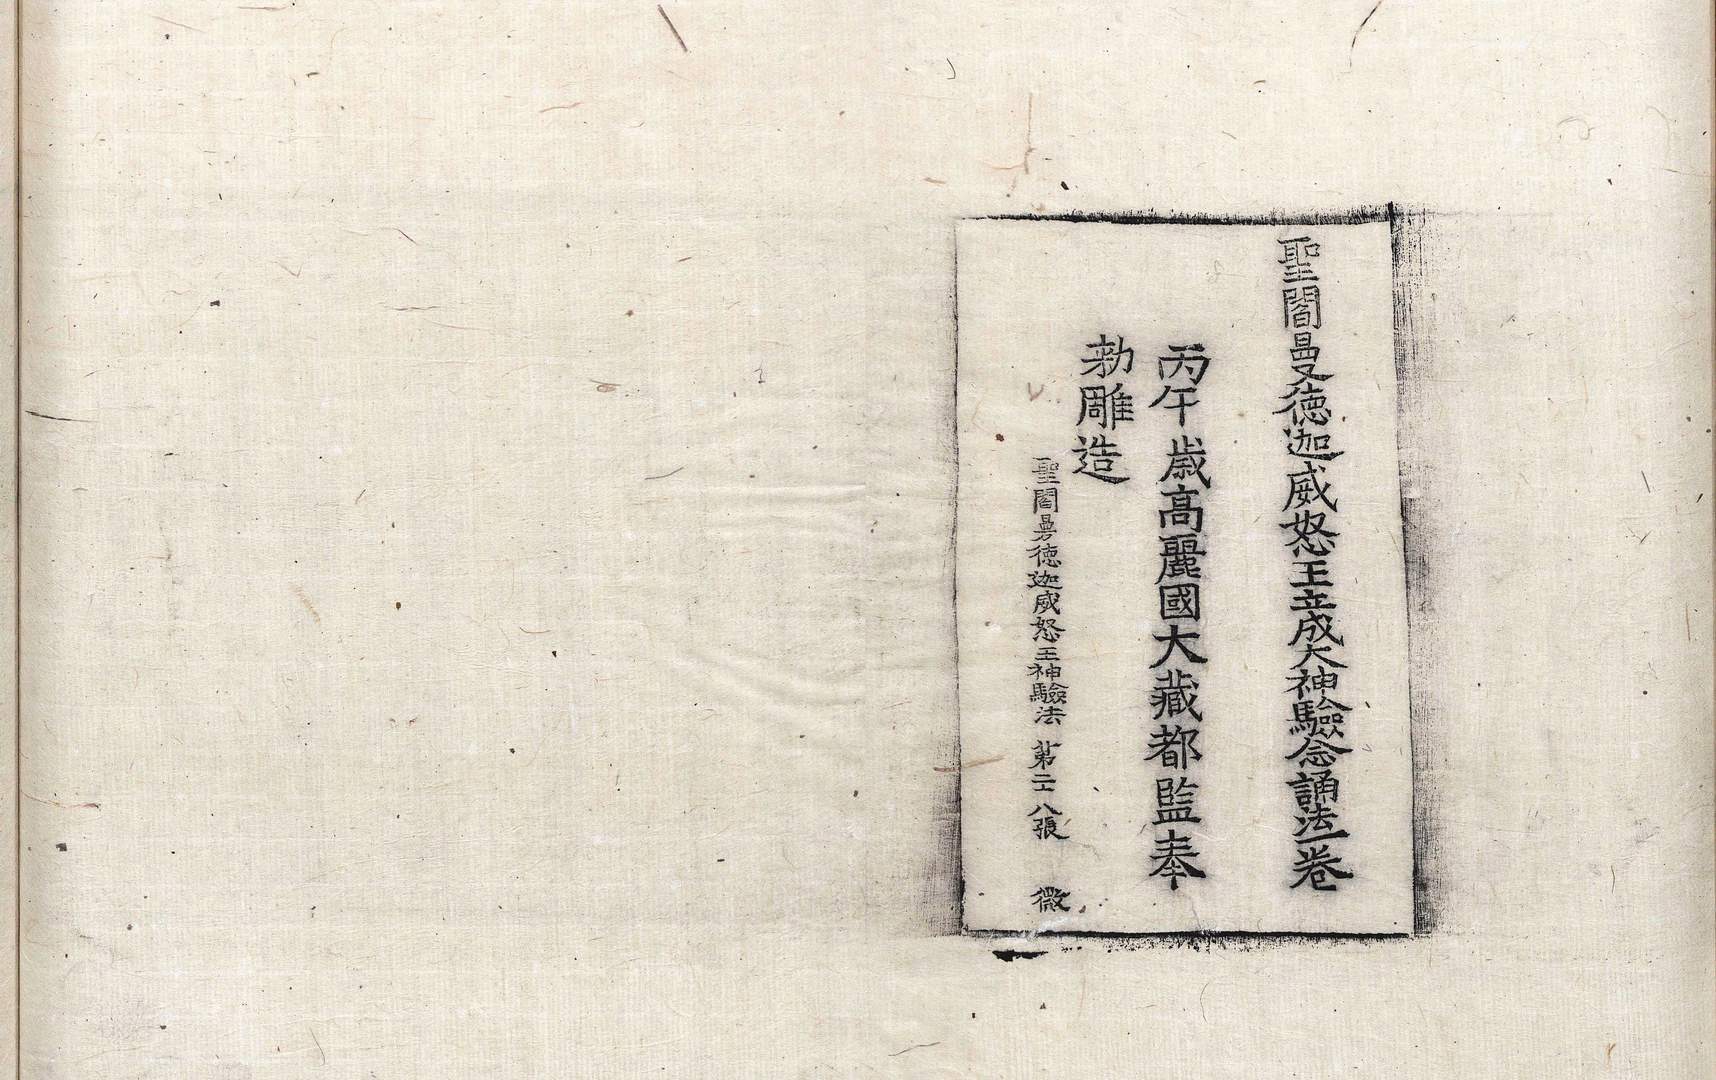 聖閻曼徳迦威怒王立成大神驗念誦法一卷
丙午歲高麗國大藏都監奉
勑雕造
聖閻曼徳迦威怒王神驗法 第二十八張 微